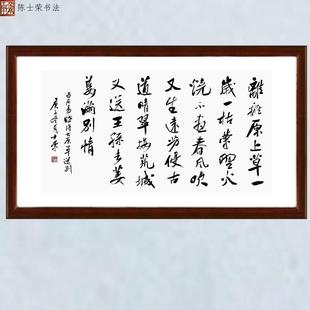 陈士荣书法
離離原上草一
歲一枯榮野火
燒不盡春風吹
又生遠芳侵古
道晴翠接荒城
又送王孫去萋
萋滿別情
白居易賦得古原草送別